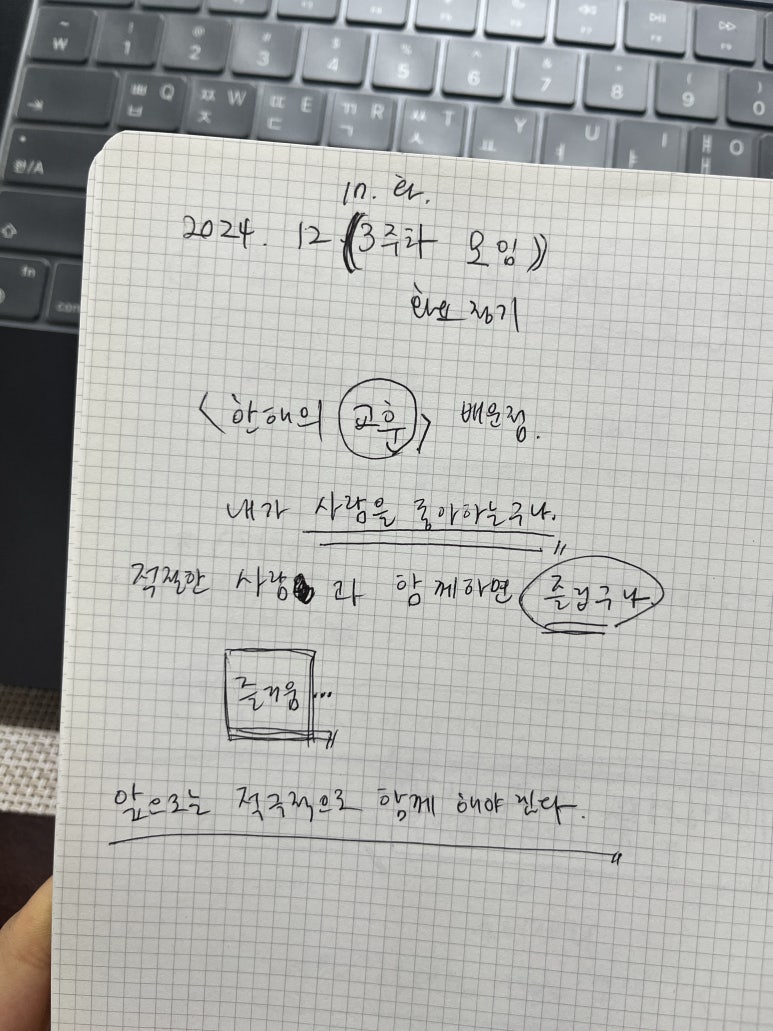 W 1 2 3 4 5 6 7 8 9 0
ㅃ Q ㅉ W ㄸ E ㄲ R ㅆ T Y U I ㅐ O
ㅂ ㅈ ㄷ ㄱ ㅅ ㅛ ㅕ ㅑ ㅔ
한/A
fn
con
in.
2024. 12 (3주차 모임)
정기
<한해의 교훈> 배운점.
내가 사람을 좋아하는구나.
적절한 사람과 함께하면 즐겁구나.
즐거움...
앞으로는 적극적으로 함께 해야 겠다.